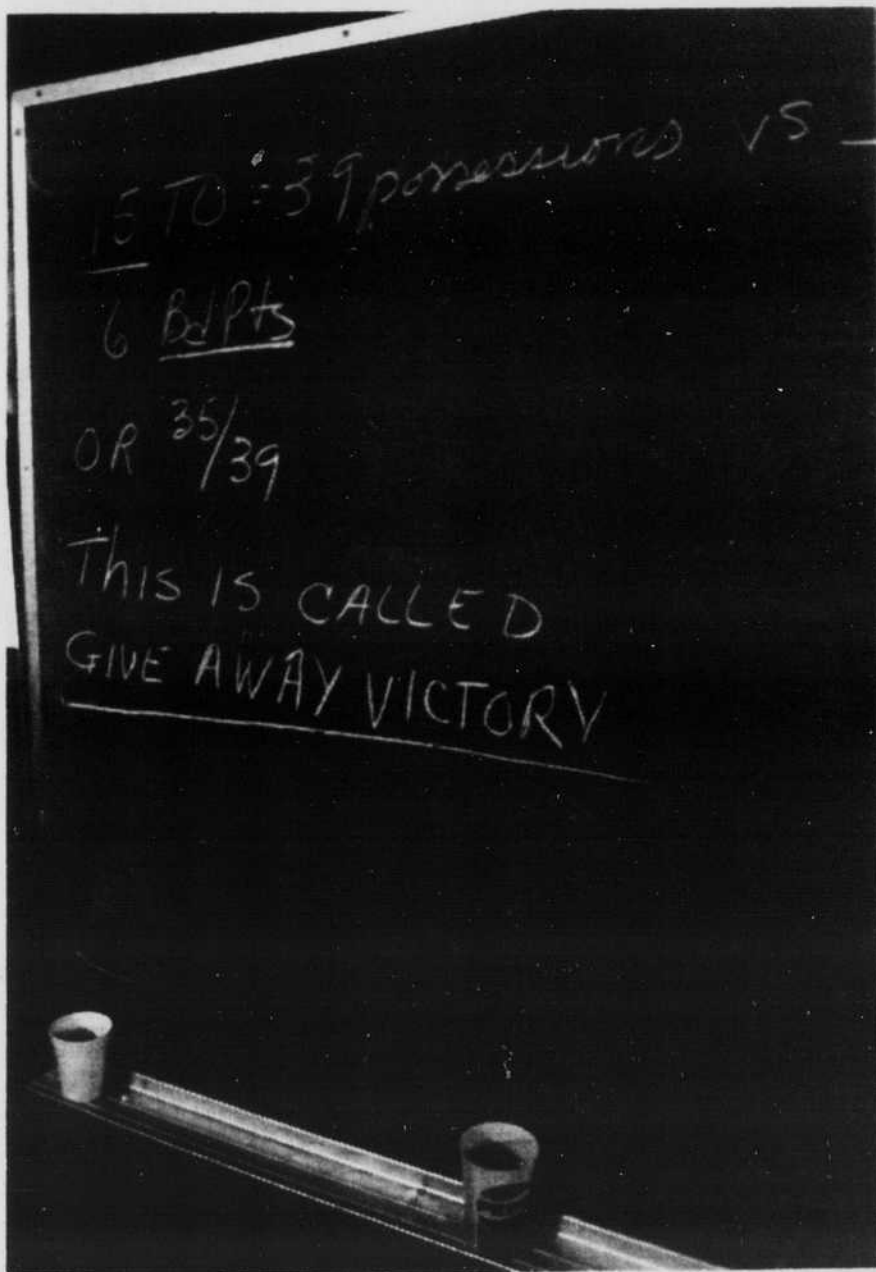 15 TO = 39 possessions VS
6 Bd Pts
OR 35/39
This IS CALLED
GIVE AWAY VICTORY